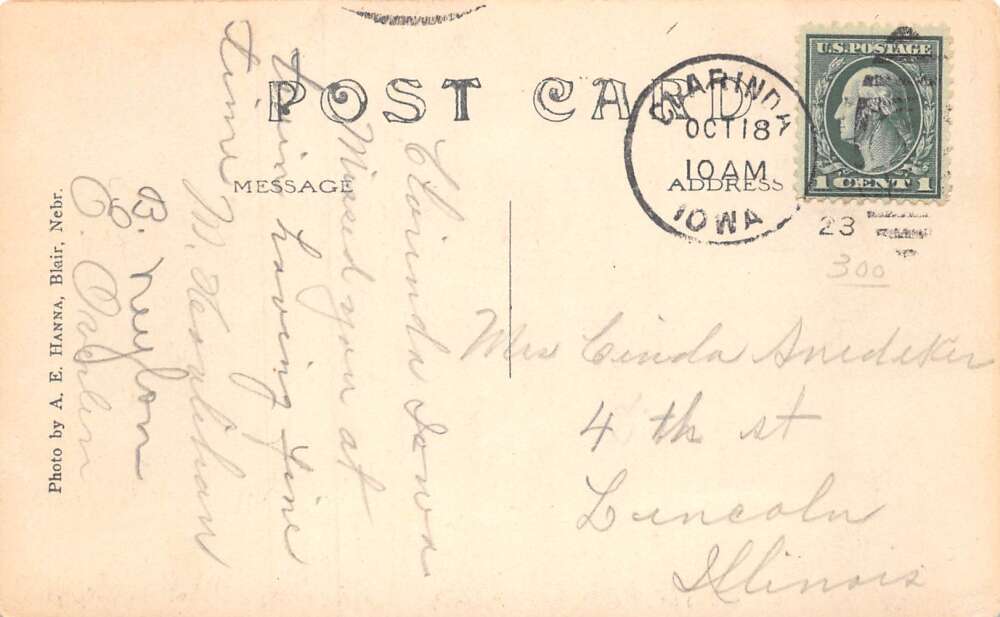 POST CARD
MESSAGE
ADDRESS
CLARINDA
OCT 18
10 AM
IOWA
23
U.S. POSTAGE
1 CENT 1
300
Clarinda Iowa
Missed you at
Time having fine
time
M.
B. Neylon
C.
Mrs Cinda Snedeker
4 th st
Lincoln
Illinois
Photo by A. E. HANNA, Blair, Nebr.